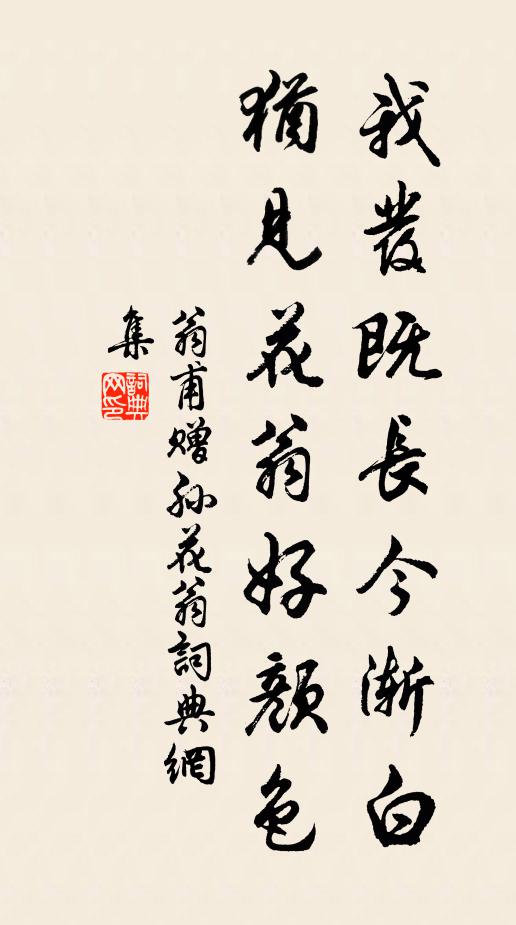 我發既長今漸白
猶見花翁好顏色
翁甫贈孫花翁詞典網
集
詞典网印